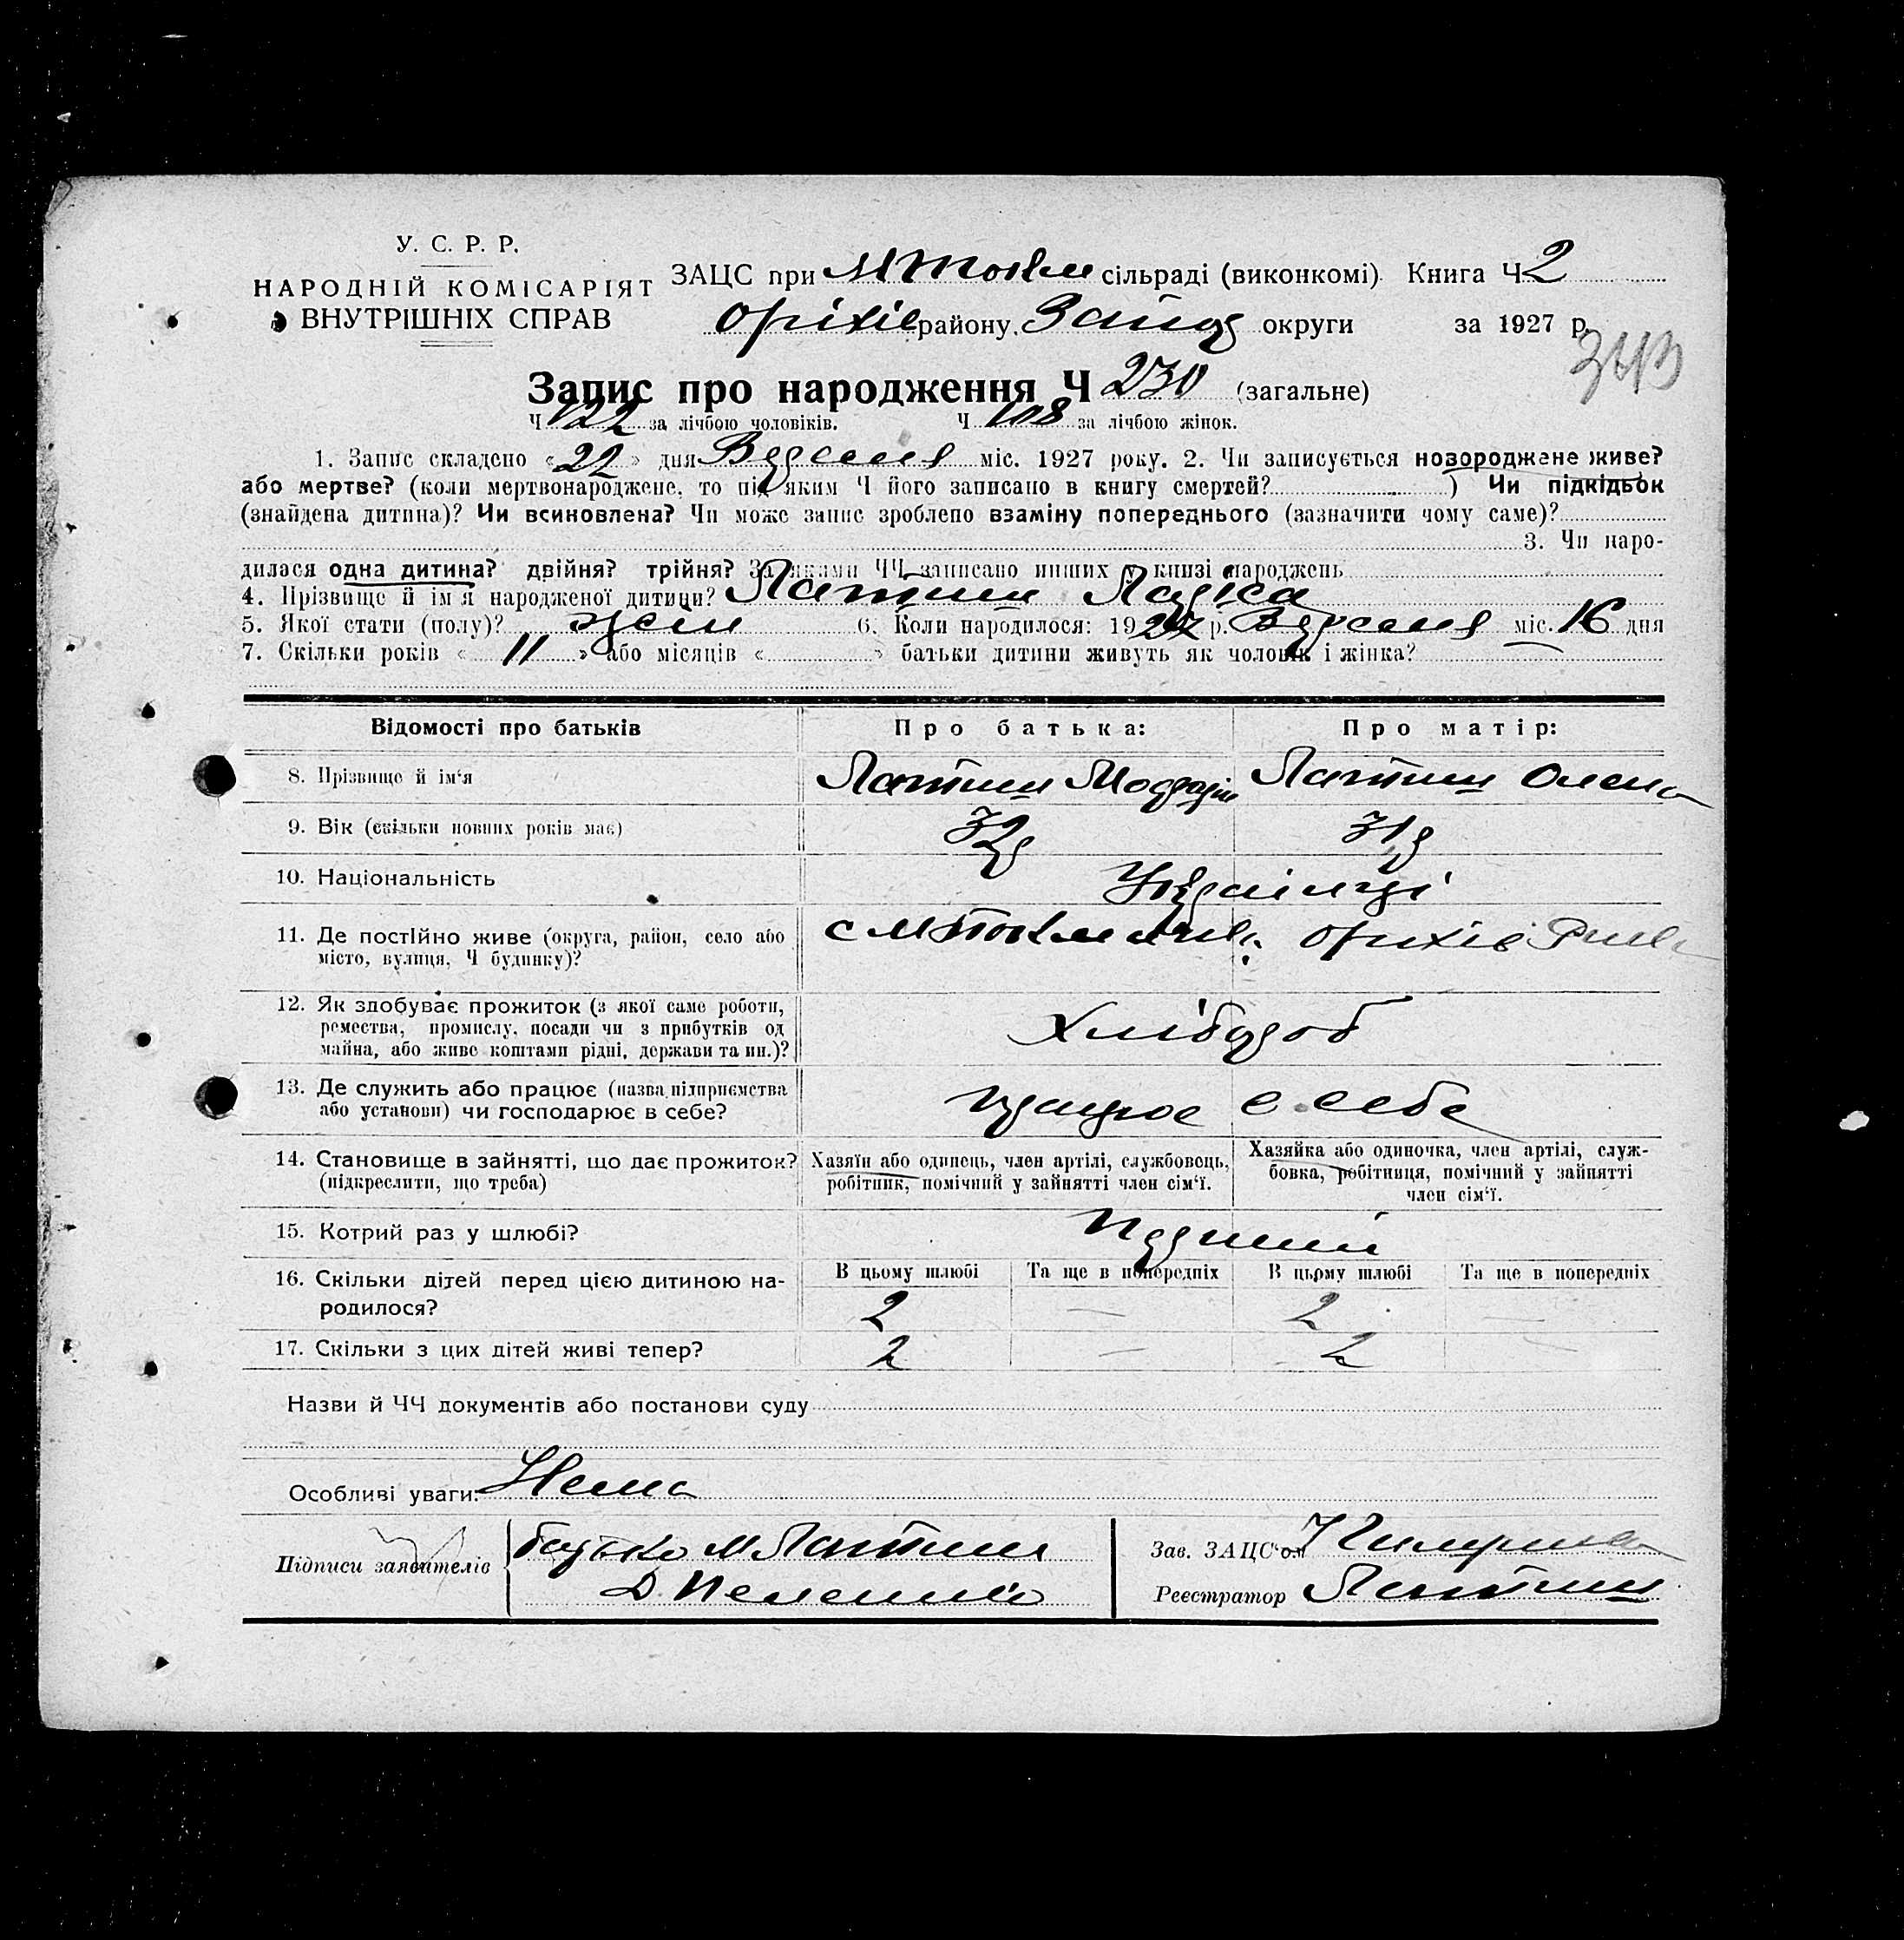 У. С. Р. Р.
НАРОДНІЙ КОМІСАРІЯТ
ВНУТРІШНІХ СПРАВ
ЗАЦС при МТокм сільраді (виконкомі). Книга Ч 2
Оріхів району, Запор округи за 1927 р.
Запис про народження Ч 230 (загальне)
Ч 122 за лічбою чоловіків. Ч 108 за лічбою жінок.
1. Запис складено «22» дня Вересня міс. 1927 року. 2. Чи записується новороджене живе?
або мертве? (коли мертвонароджене, то під яким Ч його записано в книгу смертей? ) Чи підкідьок
(знайдена дитина)? Чи всиновлена? Чи може запис зроблено взаміну попереднього (зазначити чому саме)?
3. Чи наро-
дилася одна дитина? двійня? трійня? За якими ЧЧ записано инших у книзі народжень
4. Прізвище й ім'я народженої дитини? Лаптии Лариса
5. Якої стати (полу)? жен 6. Коли народилося: 1927 р. Вересня міс. 16 дня
7. Скільки років «11» або місяців « » батьки дитини живуть як чоловік і жінка?
Відомості про батьків
Про батька:
Про матір:
8. Прізвище й ім'я
Олена
9. Вік (скільки повних років має)
32р
31р
10. Національність
Українці
11. Де постійно живе (округа, район, село або
місто, вулиця, Ч будинку)?
с МТокмачка Оріхів
12. Як здобуває прожиток (з якої саме роботи,
ремества, промислу, посади чи з прибутків од
майна, або живе коштами рідні, держави та ин.)?
Хлібороб
13. Де служить або працює (назва підприємства
або установи) чи господарює в себе?
працює в себе
14. Становище в зайнятті, що дає прожиток?
(підкреслити, що треба)
Хазяїн або одинець, член артілі, службовець,
робітник, помічний у зайнятті член сім'ї.
Хазяйка або одиночка, член артілі, служ-
бовка, робітниця, помічний у зайнятті
член сім'ї.
15. Котрий раз у шлюбі?
Перший
16. Скільки дітей перед цією дитиною на-
родилося?
В цьому шлюбі
Та ще в попередніх
В цьому шлюбі
Та ще в попередніх
2 — 2 —
17. Скільки з цих дітей живі тепер?
2 — 2 —
Назви й ЧЧ документів або постанови суду
Особливі уваги: Нема
Підписи заявителів
батько М
Зав. ЗАЦС'ом
Реєстратор